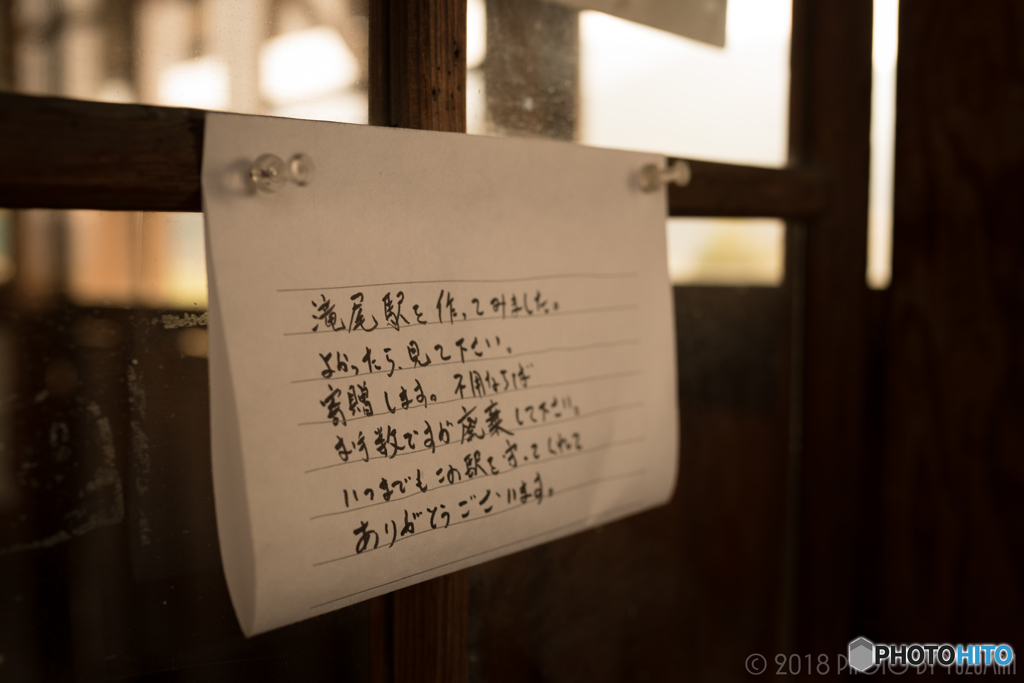 滝尾駅を作ってみました。
よかったら、見て下さい。
寄贈します。不用ならば
お手数ですが廃棄して下さい。
いつまでもこの駅を守ってくれて
ありがとうございます。
© 2018 PHOTO BY YUZUAMI
PHOTOHITO